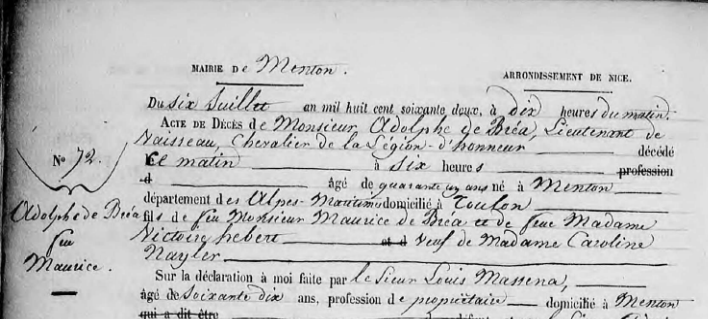 MAIRIE De Menton.
ARRONDISSEMENT DE NICE.
Du six Juillet an mil huit cent soixante deux, à dix heures du matin.
ACTE DE DÉCÈS de Monsieur Adolphe de Bréa, Lieutenant de
Vaisseau, Chevalier de la Légion-d'honneur décédé
Ce matin à six heures profession
d âgé de quarante un ans né à Menton
département des Alpes-Maritimes domicilié à Toulon
fils de feu Monsieur Maurice de Bréa et de feue Madame
Victoire hebert et d Veuf de Madame Caroline
Nayler
Sur la déclaration à moi faite par le Sieur Louis Massena,
âgé de Soixante dix ans, profession de propriétaire domicilié à Menton
qui a dit être
N° 72.
Adolphe de Bréa
feu
Maurice.